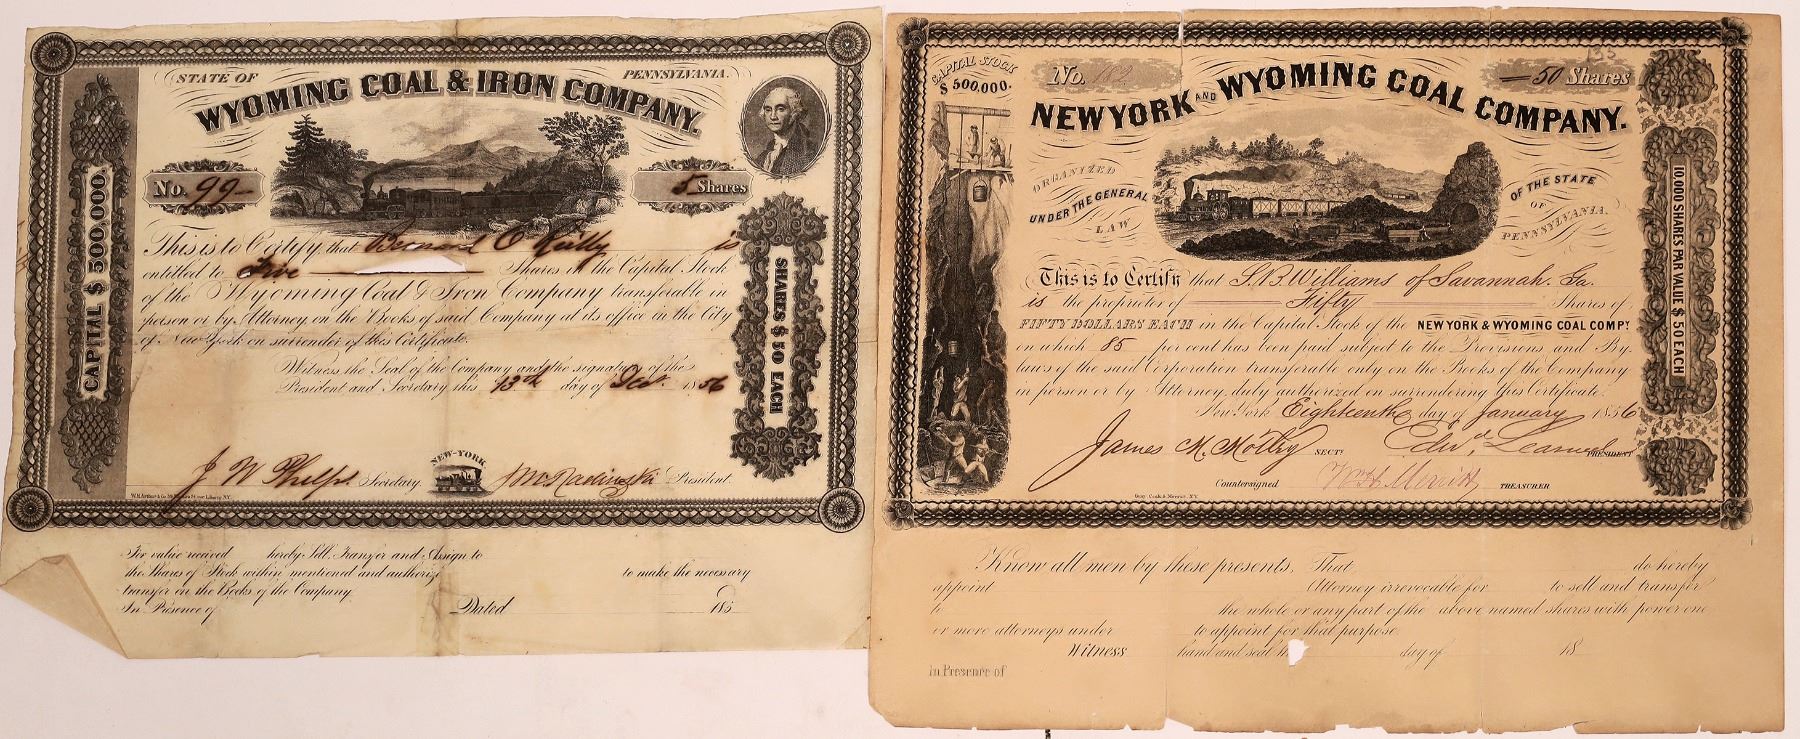 STATE OF PENNSYLVANIA.
WYOMING COAL & IRON COMPANY.
No. 99
5 Shares
CAPITAL $ 500,000.
SHARES $ 50 EACH
This is to Certify that Bernard O Reilly is
entitled to Five Shares in the Capital Stock
of the Wyoming Coal & Iron Company transferable in
person or by Attorney on the Books of said Company at its office in the City
of New York on surrender of this Certificate.
Witness the Seal of the Company and the signature of the
President and Secretary this 13th day of Dec. 1856
NEW-YORK
J W Phelps Secretary. President.
For value received hereby Sell, Transfer and Assign to
the Shares of Stock within mentioned and authorize to make the necessary
transfer on the Books of the Company.
In Presence of Dated 185
CAPITAL STOCK
$ 500,000.
No. 182
133
50 Shares
NEW YORK AND WYOMING COAL COMPANY.
ORGANIZED
UNDER THE GENERAL
LAW
OF THE STATE
OF
PENNSYLVANIA.
10.000 SHARES PAR VALUE $ 50 EACH
This is to Certify that S.B. Williams of Savannah, Ga.
is the proprietor of Fifty Shares of
FIFTY DOLLARS EACH in the Capital Stock of the NEW YORK & WYOMING COAL COMPY
on which 85 per cent has been paid subject to the Provisions and By-
laws of the said Corporation transferable only on the Books of the Company
in person or by Attorney, duly authorized on surrendering this Certificate.
New York Eighteenth day of January 1856
James M. Motley SECTY Edwd. Learned PRESIDENT
Countersigned W H Merritt TREASURER
Know all men by these presents, That do hereby
appoint Attorney irrevocable for to sell and transfer
to the whole or any part of the above named shares with power one
or more attorneys under to appoint for that purpose.
Witness hand and seal day of 18
In Presence of